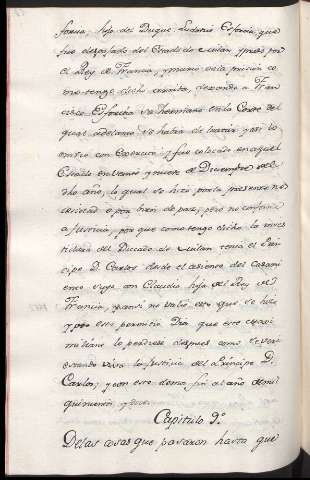 forcia, hijo del Duque Ludovico Esforcia, que
fue despojado del Estado de Milan y preso por
el Rey de Francia, y murio en la prision co
mo tengo dicho arriba, dexando a Fran
cisco Esforcia su hermano en la Corte del
qual adelante se habra de tratar y asi lo
omito con
Estado en veinte y nueve de Diciembre del
dho año, lo qual se hizo por la presente ne
cesidad o por bien de paz, pero no conforme
a Justicia, por que como tengo dicho la inves
tidura del Ducado de Milan tenia el Prin
cipe D. Carlos desde el asiento del casami
ento suyo con Claudia hija del Rey de
Francia, y ansi no valio esto que se hizo
y por esto permitio Dios que este Maxi
miliano lo perdiese despues como
estando viva la Justicia del Principe D.
Carlos, y con esto demos fin al año de mil
quinientos y doce.
Capitulo 9º
De las cosas que pasaron hasta que el